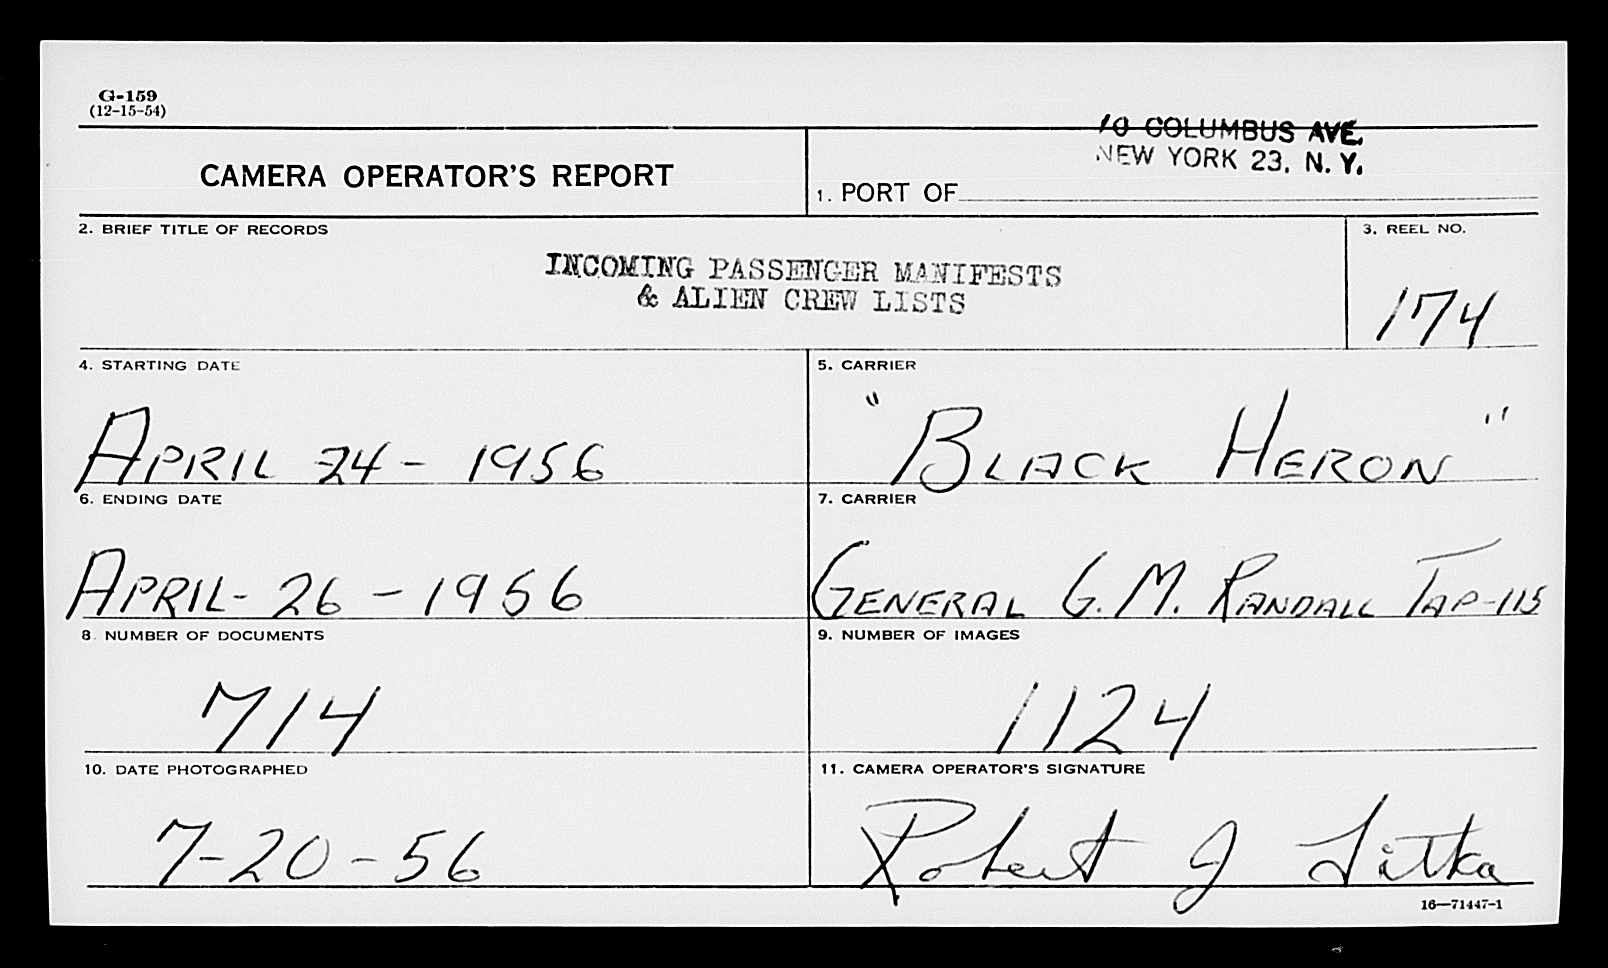 G-159
(12-15-54)
70 COLUMBUS AVE.
NEW YORK 23, N. Y.
CAMERA OPERATOR'S REPORT
1. PORT OF
2. BRIEF TITLE OF RECORDS
INCOMING PASSENGER MANIFESTS
& ALIEN CREW LISTS
3. REEL NO.
174
4. STARTING DATE
APRIL 24 - 1956
5. CARRIER
"BLACK HERON"
6. ENDING DATE
APRIL - 26 - 1956
7. CARRIER
GENERAL G. M. RANDALL TAP-115
8. NUMBER OF DOCUMENTS
714
9. NUMBER OF IMAGES
1124
10. DATE PHOTOGRAPHED
7-20-56
11. CAMERA OPERATOR'S SIGNATURE
Robert J Litka
16—71447-1